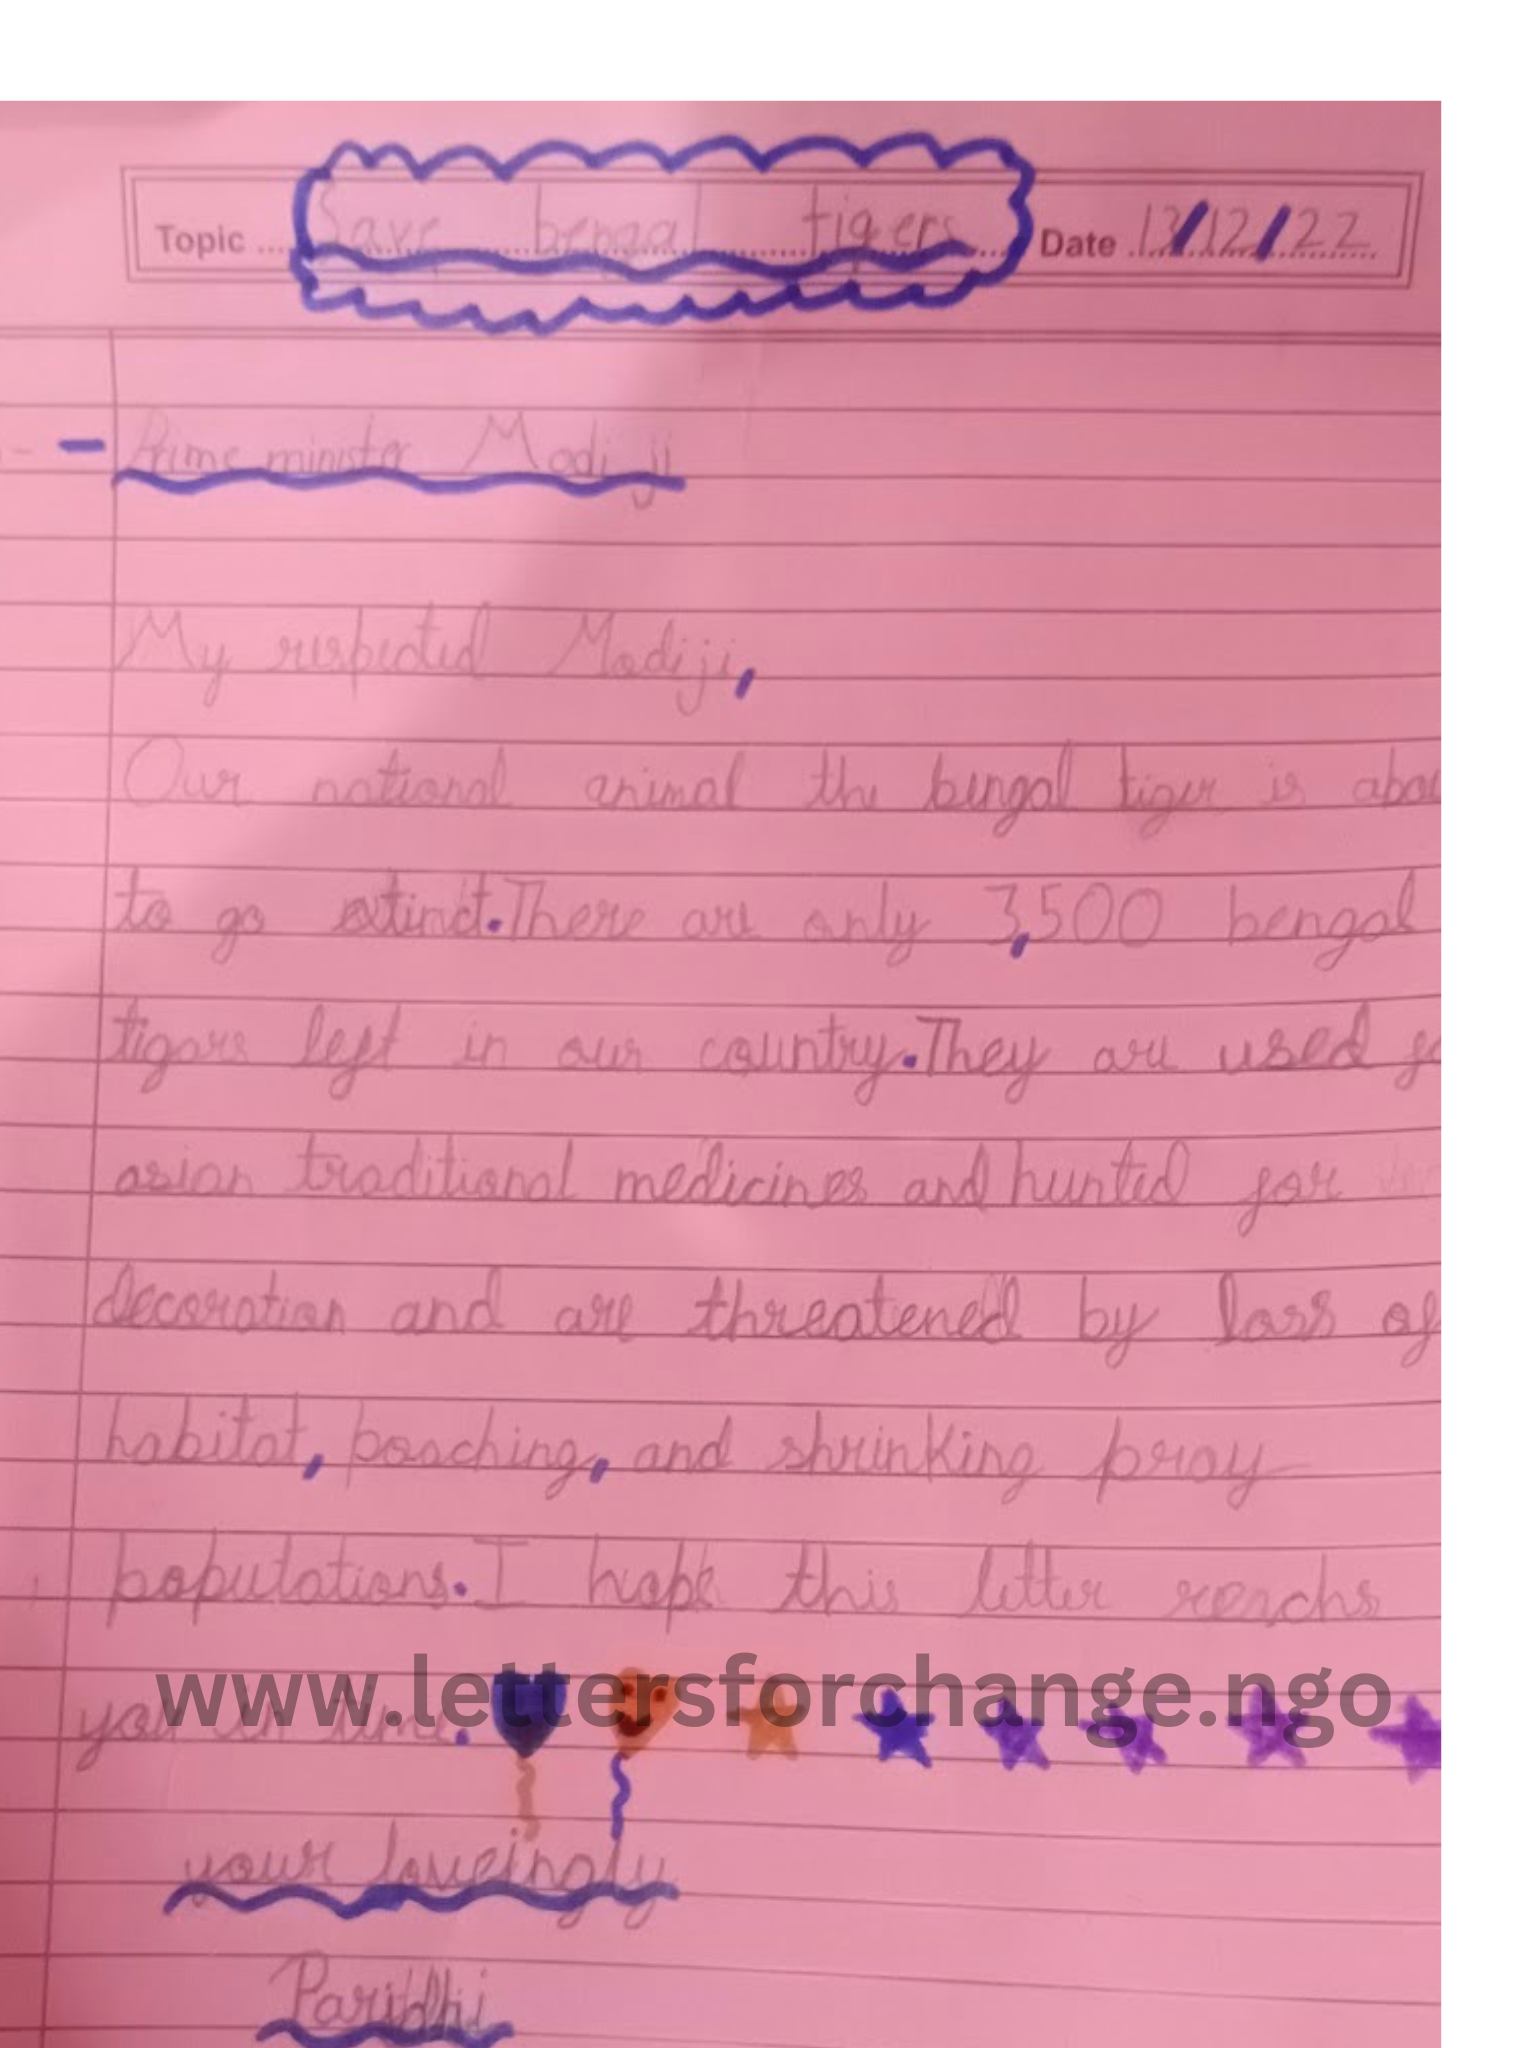 Topic Save bengal tigers Date 13/12/22
- Prime minister Modi ji
My respected Modiji,
Our national animal the bengal tiger is abou
to go extinct. There are only 3,500 bengal
tigers left in our country. They are used fo
asian traditional medicines and hunted for
decoration and are threatened by loss of
habitat, poaching, and shrinking pray
populations. I hope this letter reachs
you in time.
www.lettersforchange.ngo
your loveingly
Paridhi